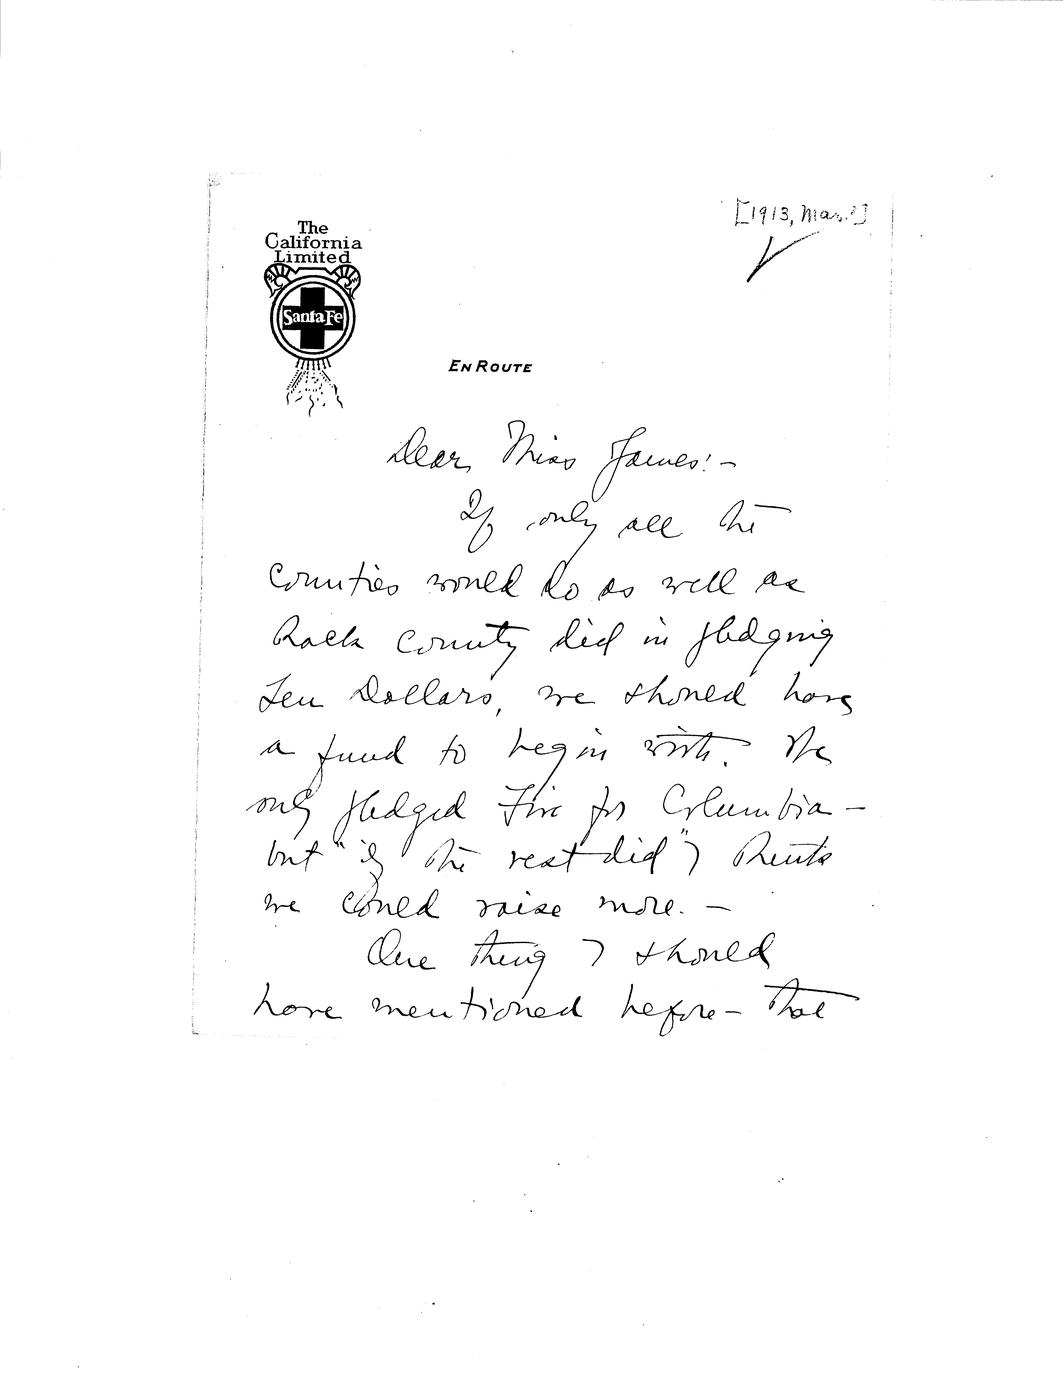 [1913, Mar.?]
The
California
Limited
Santa Fe
EN ROUTE
Dear Miss James:-
If only all the
Counties would do as well as
Rock County did in pledging
Ten Dollars, we should have
a fund to begin with. We
only pledged Five for Columbia -
but "if the rest did" I think
we could raise more. -
One thing I should
have mentioned before - that